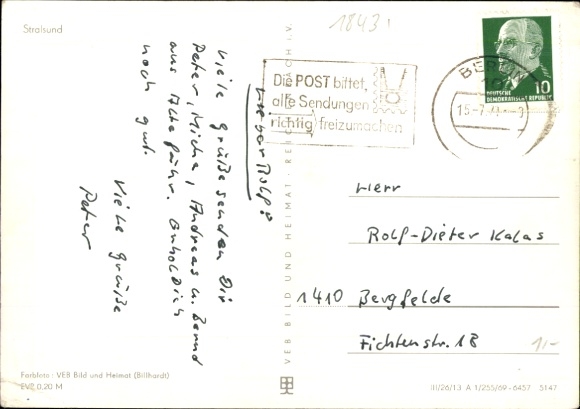 Stralsund
1843
Lieber Rolf!
Viele Grüße senden Dir
Peter, Micha, Andreas u. Bernd
aus Altefähr. Erhol Dich
noch gut.
Viele Grüße
Peter
VEB BILD UND HEIMAT · REICHENBACH i.V.
Die POST bittet,
alle Sendungen
richtig freizumachen
BERLIN
15-7.71
10
DEUTSCHE
DEMOKRATISCHE REPUBLIK
Herr
Rolf-Dieter Kalas
1410 Bergfelde
Fichtenstr. 18
1,-
Farbfoto: VEB Bild und Heimat (Billhardt)
EVP 0,20 M
III/26/13 A 1/255/69-6457 5147